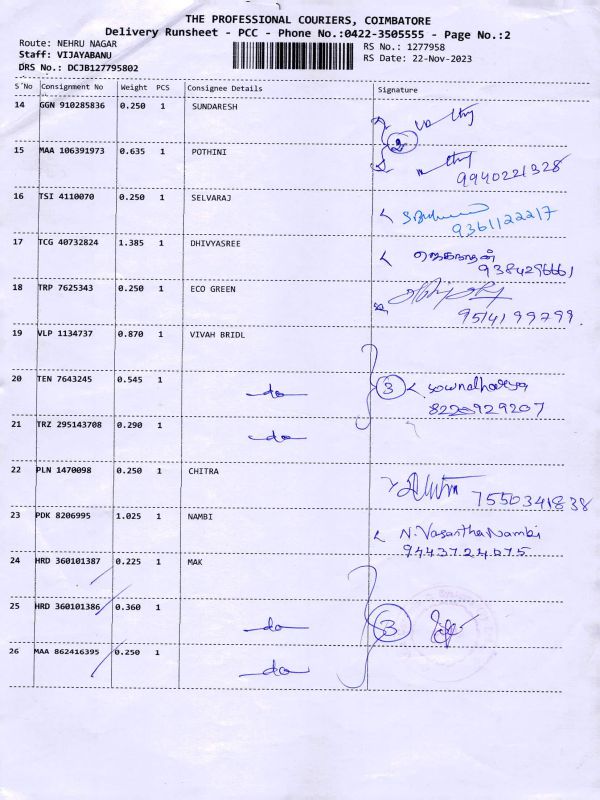 THE PROFESSIONAL COURIERS, COIMBATORE
Delivery Runsheet - PCC - Phone No.:0422-3505555 - Page No.:2
Route: NEHRU NAGAR RS No.: 1277958
Staff: VIJAYABANU RS Date: 22-Nov-2023
DRS No.: DCJB127795802
S'No Consignment No Weight PCS Consignee Details Signature
14 GGN 910285836 0.250 1 SUNDARESH
2
15 MAA 106391973 0.635 1 POTHINI
9940221328
16 TSI 4110070 0.250 1 SELVARAJ
9361122217
17 TCG 40732824 1.385 1 DHIVYASREE
9384296661
18 TRP 7625343 0.250 1 ECO GREEN
9514199799.
19 VLP 1134737 0.870 1 VIVAH BRIDL
20 TEN 7643245 0.545 1 do 3 sowndharya
8220929207
21 TRZ 295143708 0.290 1 do
22 PLN 1470098 0.250 1 CHITRA
7550341838
23 PDK 8206995 1.025 1 NAMBI N. Vasantha Nambi
9443724075
24 HRD 360101387 0.225 1 MAK
25 HRD 360101386 0.360 1 do 3
26 MAA 862416395 0.250 1 do